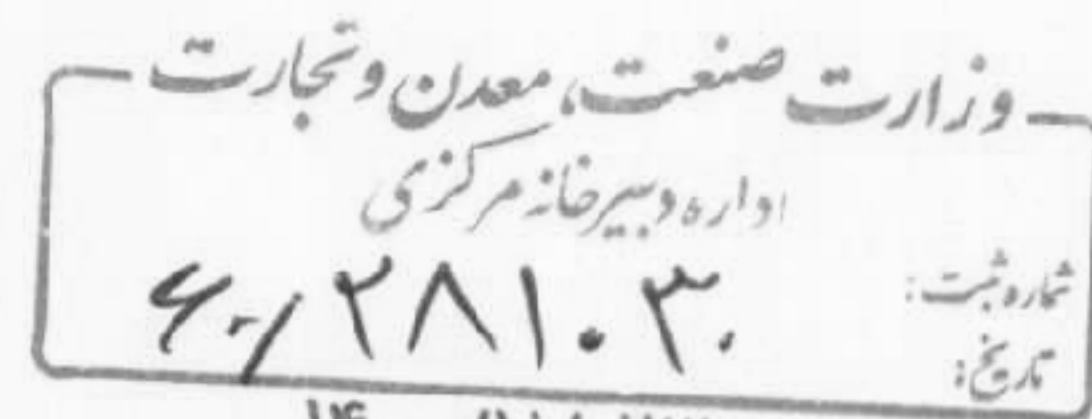 وزارت صنعت، معدن و تجارت
اداره دبیرخانه مرکزی
شماره ثبت: ۶۰/۲۸۱۰۳۰
تاریخ: